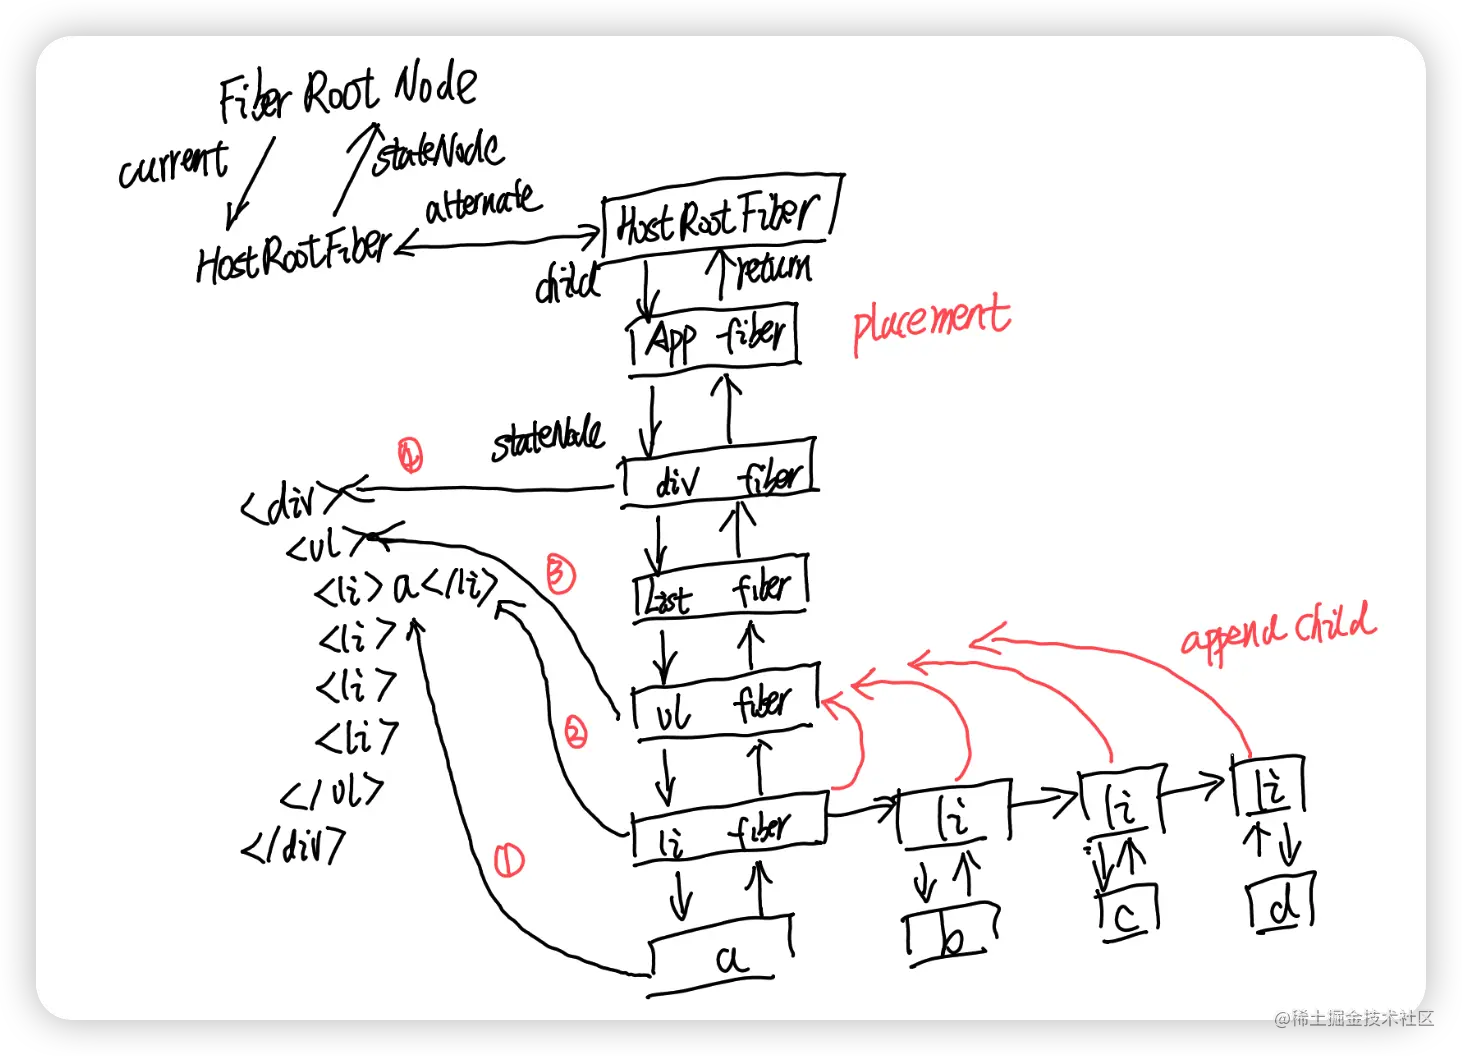 Fiber Root Node
current
stateNode
alternate
HostRootFiber
HostRootFiber
child
return
App fiber
placement
stateNode
div fiber
<div>
<ul>
③
<li>a</li>
List fiber
<li>
append child
<li>
ul fiber
<li>
②
</ul>
li fiber
li
li
li
</div>
①
a
b
c
d
@稀土掘金技术社区